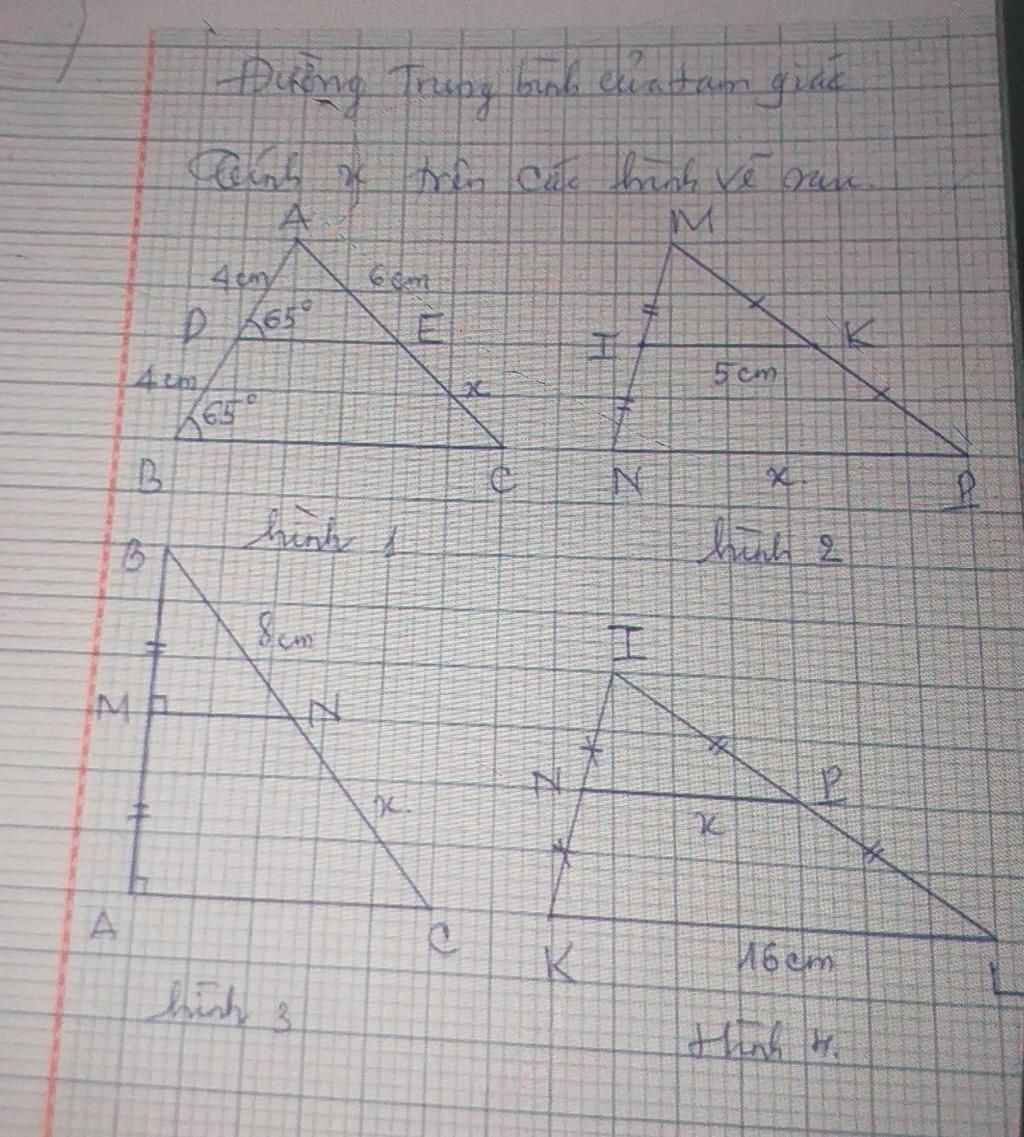 Đường Trung bình của tam giác
Tính x trên các hình vẽ sau.
A
M
4cm
6cm
D
65°
E
I
K
5cm
4cm
65°
x
B
C
N
x.
P
hình 1
hình 2
B
8cm
I
M
N
N
P
x.
x
A
C
K
16cm
L
hình 3
Hình 4.